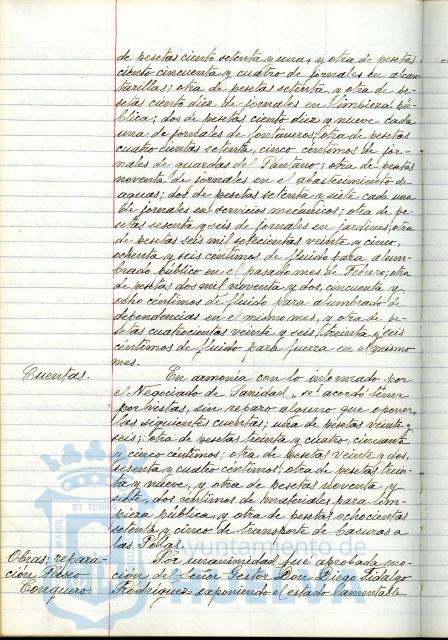 de pesetas ciento setenta y una, y otra de pesetas
ciento cincuenta y cuatro de jornales en alcan-
tarillas; otra de pesetas setenta, y otra de pe-
setas ciento diez de jornales en limpieza pú-
blica; dos de pesetas ciento diez y nueve cada
una de jornales de fontaneros; otra de pesetas
cuatrocientas setenta, cinco céntimos de jor-
nales de guardas del Pantano; otra de pesetas
noventa de jornales en el abastecimiento de
aguas; dos de pesetas setenta y siete cada una
de jornales en servicios mecánicos; otra de pe-
setas sesenta y seis de jornales en jardines; otra
de pesetas seis mil setecientas veinte y cinco,
ochenta y seis céntimos de fluido para alum-
brado público en el pasado mes de Febrero; otra
de pesetas dos mil noventa y dos, cincuenta y
ocho céntimos de fluido para alumbrado de
dependencias en el mismo mes, y otra de pe-
setas cuatrocientas veinte y seis, treinta y seis
céntimos de fluido para fuerza en el mismo
mes.
Cuentas. En armonía con lo informado por
el Negociado de Sanidad, se acordó tener
por vistas, sin reparo alguno que oponer,
las siguientes cuentas; una de pesetas veinte y
seis; otra de pesetas treinta y cuatro, cincuenta
y cinco céntimos; otra de pesetas veinte y dos,
sesenta y cuatro céntimos; otra de pesetas trein-
ta y nueve, y otra de pesetas noventa y
siete, dos céntimos de materiales para lim-
pieza pública, y otra de pesetas ochocientas
setenta y cinco de transporte de basuras a
las Pollas.
Obras; repara-
ción Paseo
Conquero.
Por unanimidad fué aprobada mo-
ción del Señor Gestor Don Diego Fidalgo
Rodríguez exponiendo el estado lamentable
ET TERR
Ayuntamiento de
HUELVA